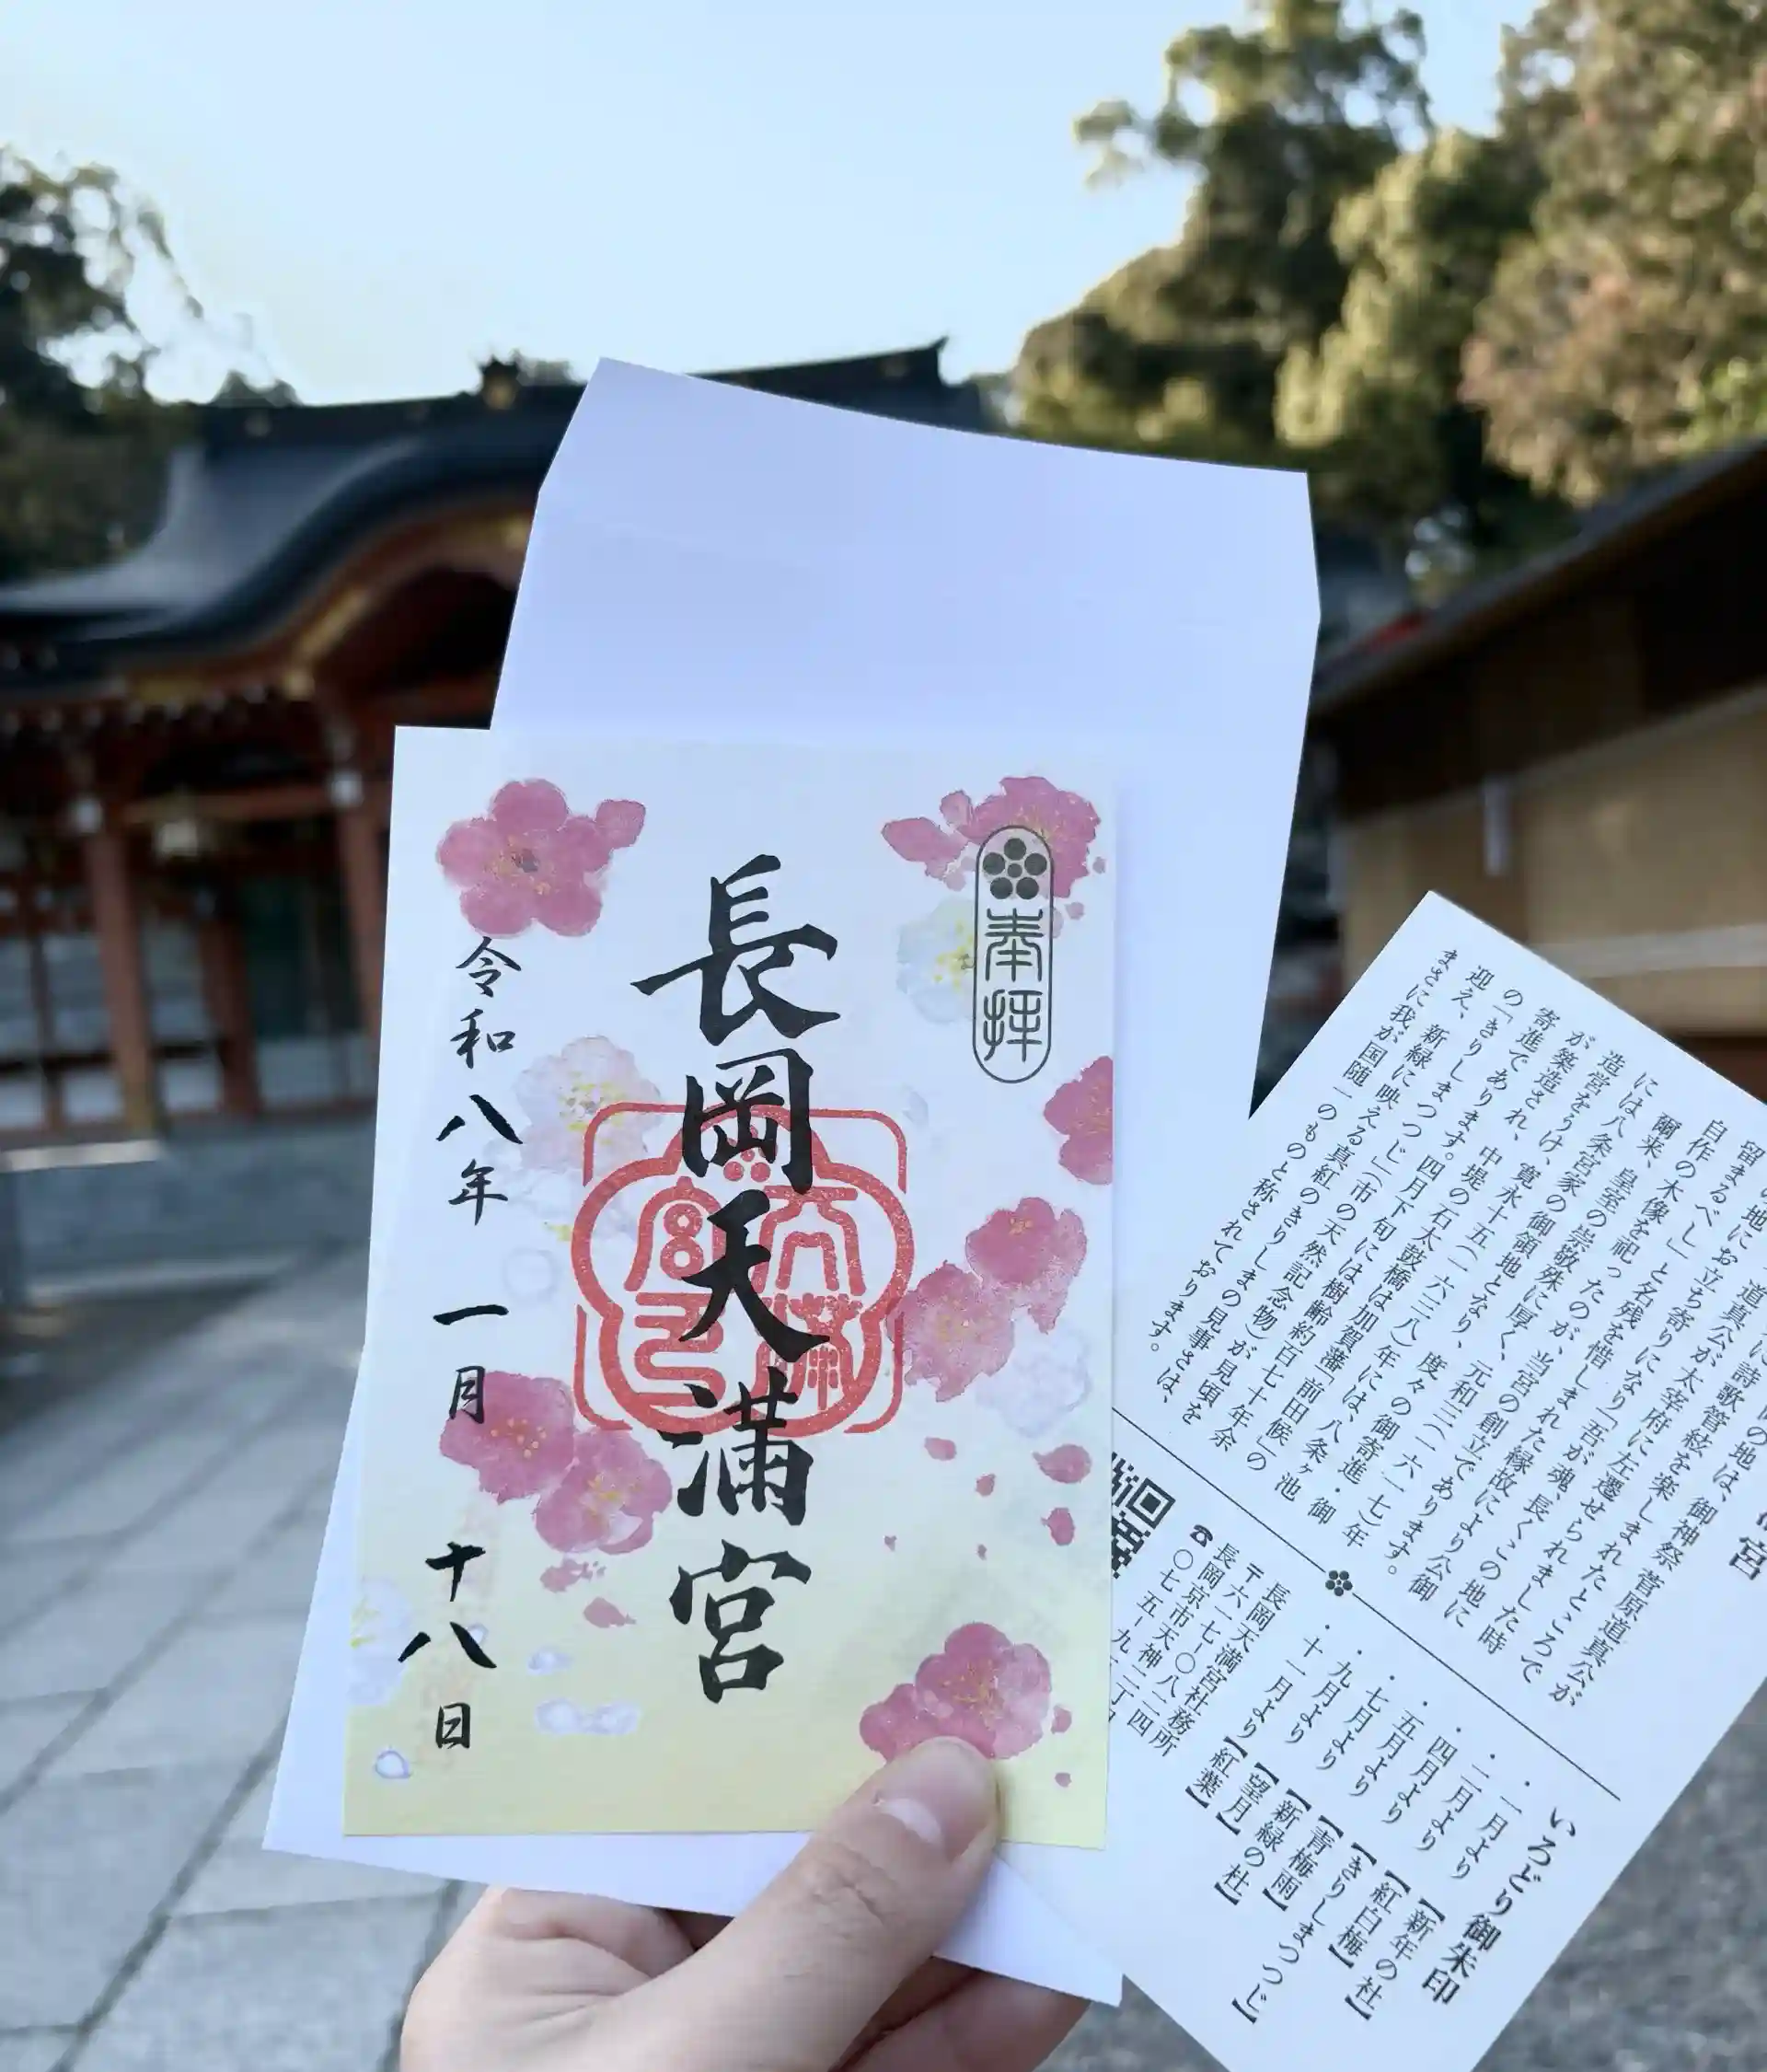 奉拝
長岡天満宮
令和八年 一月 十八日
の地は、御神祭菅原道真公が
に詩歌管絃を楽しまれたところで
道真公が太宰府に左遷せられました時
の地にお立ち寄りになり「吾が魂、長くこの地に
留まるべし」と名残を惜しまれた縁故により公御
自作の木像を祀ったのが、当宮の創立であります。
爾来、皇室の崇敬殊に厚く、元和三(一六一七)年
には八条宮家の御領地となり、度々の御寄進・御
造営をうけ、寛永十五(一六三八)年には、八条ヶ池
が築造され、中堤の石太鼓橋は加賀藩「前田候」の
寄進であります。四月下旬には樹齢約百七十年余
の「きりしまつつじ」(市の天然記念物)が見頃を
迎え、新緑に映える真紅のきりしまの見事さは、
まさに我が国随一のものと称されております。
いろどり御朱印
・一月より【新年の社】
・二月より【紅白梅】
・四月より【きりしまつつじ】
・五月より【青梅雨】
・七月より【新緑の杜】
・九月より【望月】
・十一月より【紅葉】
長岡天満宮社務所
〒六一七-〇八二四
長岡京市天神二丁
☎〇七五-九